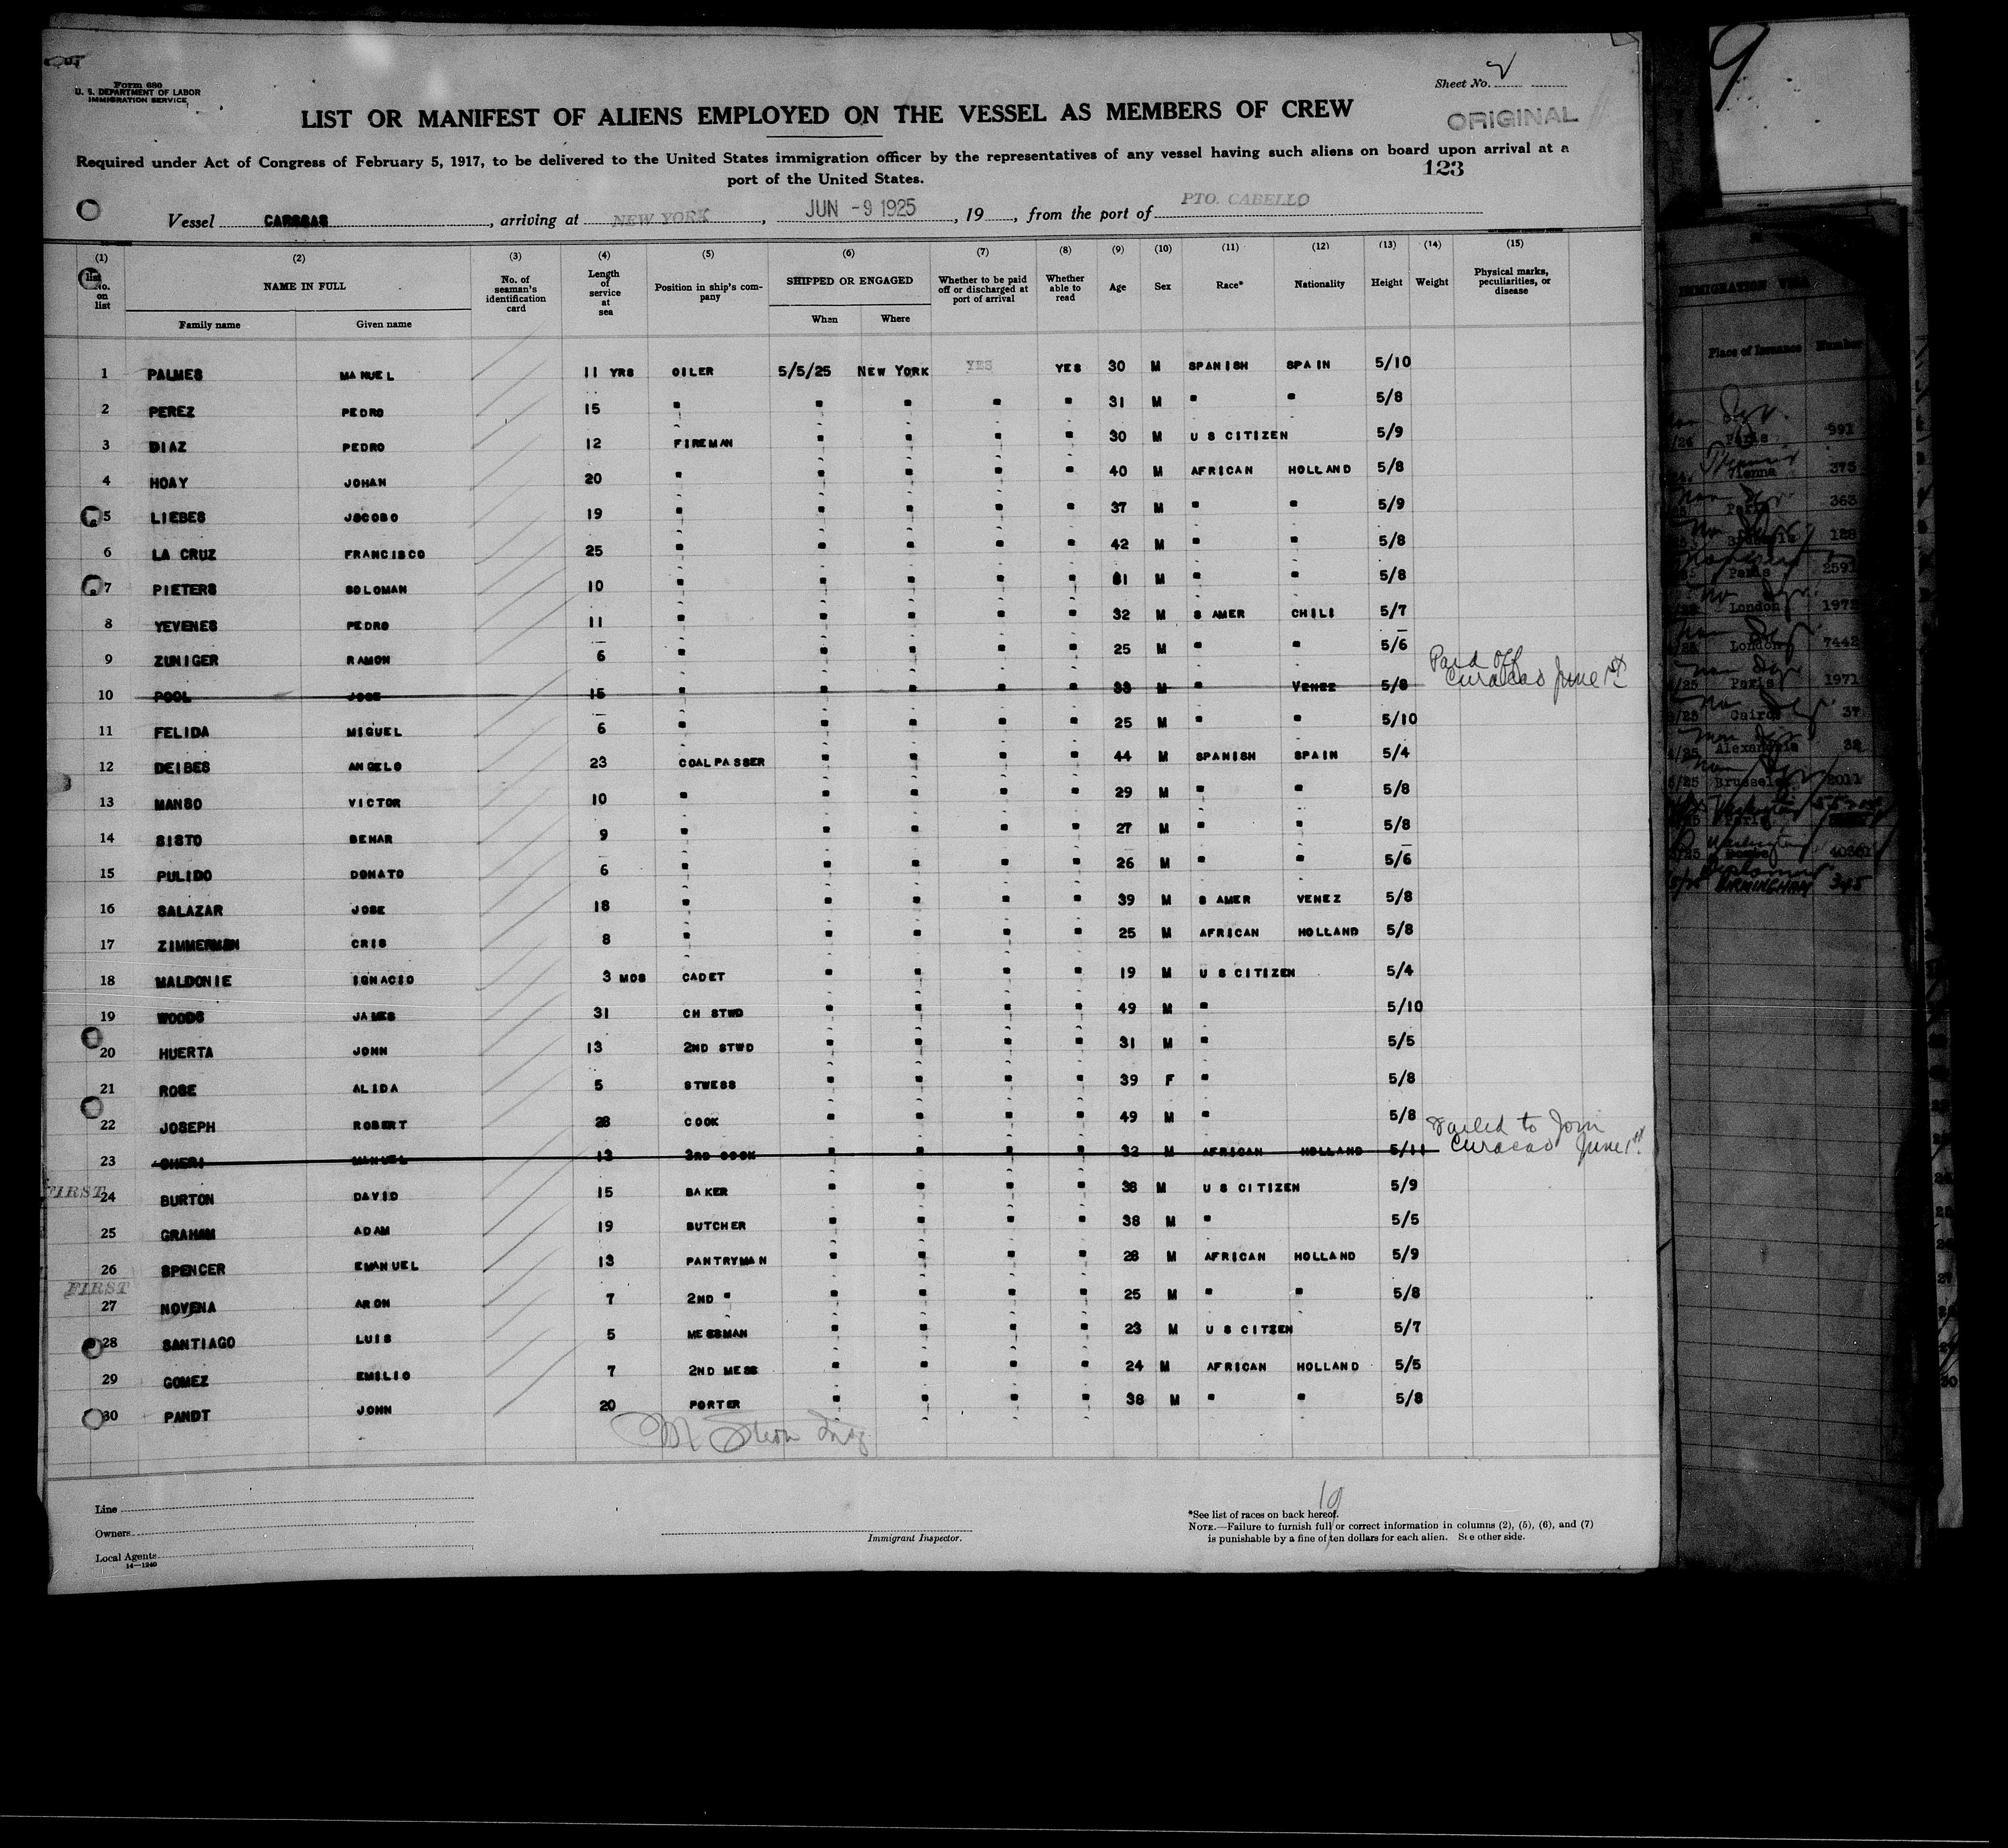 Form 680
U. S. DEPARTMENT OF LABOR
IMMIGRATION SERVICE
Sheet No. 2
LIST OR MANIFEST OF ALIENS EMPLOYED ON THE VESSEL AS MEMBERS OF CREW
ORIGINAL
Required under Act of Congress of February 5, 1917, to be delivered to the United States immigration officer by the representatives of any vessel having such aliens on board upon arrival at a
port of the United States.
123
Vessel CARACAS, arriving at NEW YORK, JUN -9 1925, 19, from the port of PTO. CABELLO
(1) (2) (3) (4) (5) (6) (7) (8) (9) (10) (11) (12) (13) (14) (15)
No. on list NAME IN FULL No. of seaman's identification card Length of service at sea Position in ship's company SHIPPED OR ENGAGED Whether to be paid off or discharged at port of arrival Whether able to read Age Sex Race* Nationality Height Weight Physical marks, peculiarities, or disease
Family name Given name When Where
1 PALMES MANUEL 11 YRS OILER 5/5/25 NEW YORK YES YES 30 M SPANISH SPAIN 5/10
2 PEREZ PEDRO 15 " " " " " 31 M " " 5/8
3 DIAZ PEDRO 12 FIREMAN " " " " 30 M U S CITIZEN 5/9
4 HOAY JOHAN 20 " " " " " 40 M AFRICAN HOLLAND 5/8
5 LIEBES JACOBO 19 " " " " " 37 M " " 5/9
6 LA CRUZ FRANCISCO 25 " " " " " 42 M " " 5/8
7 PIETERS SOLOMAN 10 " " " " " 31 M " " 5/8
8 YEVENES PEDRO 11 " " " " " 32 M S AMER CHILI 5/7
9 ZUNIGER RAMON 6 " " " " " 25 M " " 5/6
10 POOL JOSE 15 " " " " " 33 M " VENEZ 5/8 Paid off Curacao June 1st
11 FELIDA MIGUEL 6 " " " " " 25 M " " 5/10
12 DEIBES ANGELO 23 COALPASSER " " " " 44 M SPANISH SPAIN 5/4
13 MANSO VICTOR 10 " " " " " 29 M " " 5/8
14 SISTO BENAR 9 " " " " " 27 M " " 5/8
15 PULIDO DONATO 6 " " " " " 26 M " " 5/6
16 SALAZAR JOSE 18 " " " " " 39 M S AMER VENEZ 5/8
17 ZIMMERMAN CRIS 8 " " " " " 25 M AFRICAN HOLLAND 5/8
18 MALDONIE IGNACIO 3 MOS CADET " " " " 19 M U S CITIZEN 5/4
19 WOODS JAMES 31 CH STWD " " " " 49 M " 5/10
20 HUERTA JOHN 13 2ND STWD " " " " 31 M " 5/5
21 ROSE ALIDA 5 STWESS " " " " 39 F " 5/8
22 JOSEPH ROBERT 28 COOK " " " " 49 M " 5/8
23 CHERI MANUEL 13 3RD COOK " " " " 32 M AFRICAN HOLLAND 5/11 Failed to Join Curacao June 1st
FIRST 24 BURTON DAVID 15 BAKER " " " " 38 M U S CITIZEN 5/9
25 GRAHAM ADAM 19 BUTCHER " " " " 38 M " 5/5
26 SPENCER EMANUEL 13 PANTRYMAN " " " " 28 M AFRICAN HOLLAND 5/9
FIRST 27 NOVENA ARON 7 2ND " " " " " 25 M " " 5/8
28 SANTIAGO LUIS 5 MESSMAN " " " " 23 M U S CITSEN 5/7
29 GOMEZ EMILIO 7 2ND MESS " " " " 24 M AFRICAN HOLLAND 5/5
30 PANDT JOHN 20 PORTER " " " " 38 M " " 5/8
Line
Owners
Local Agents
14—1240
Immigrant Inspector.
19
*See list of races on back hereof.
NOTE.—Failure to furnish full or correct information in columns (2), (5), (6), and (7)
is punishable by a fine of ten dollars for each alien. See other side.
9
IMMIGRATION VISA
Place of Issuance Number
Paris 991
Vienna 375
363
128
Paris 2591
London 1972
London 7442
Paris 1971
Cairo 37
Alexandria 32
Brussels 2011
Washington
Washington 40361
BIRMINGHAM 345